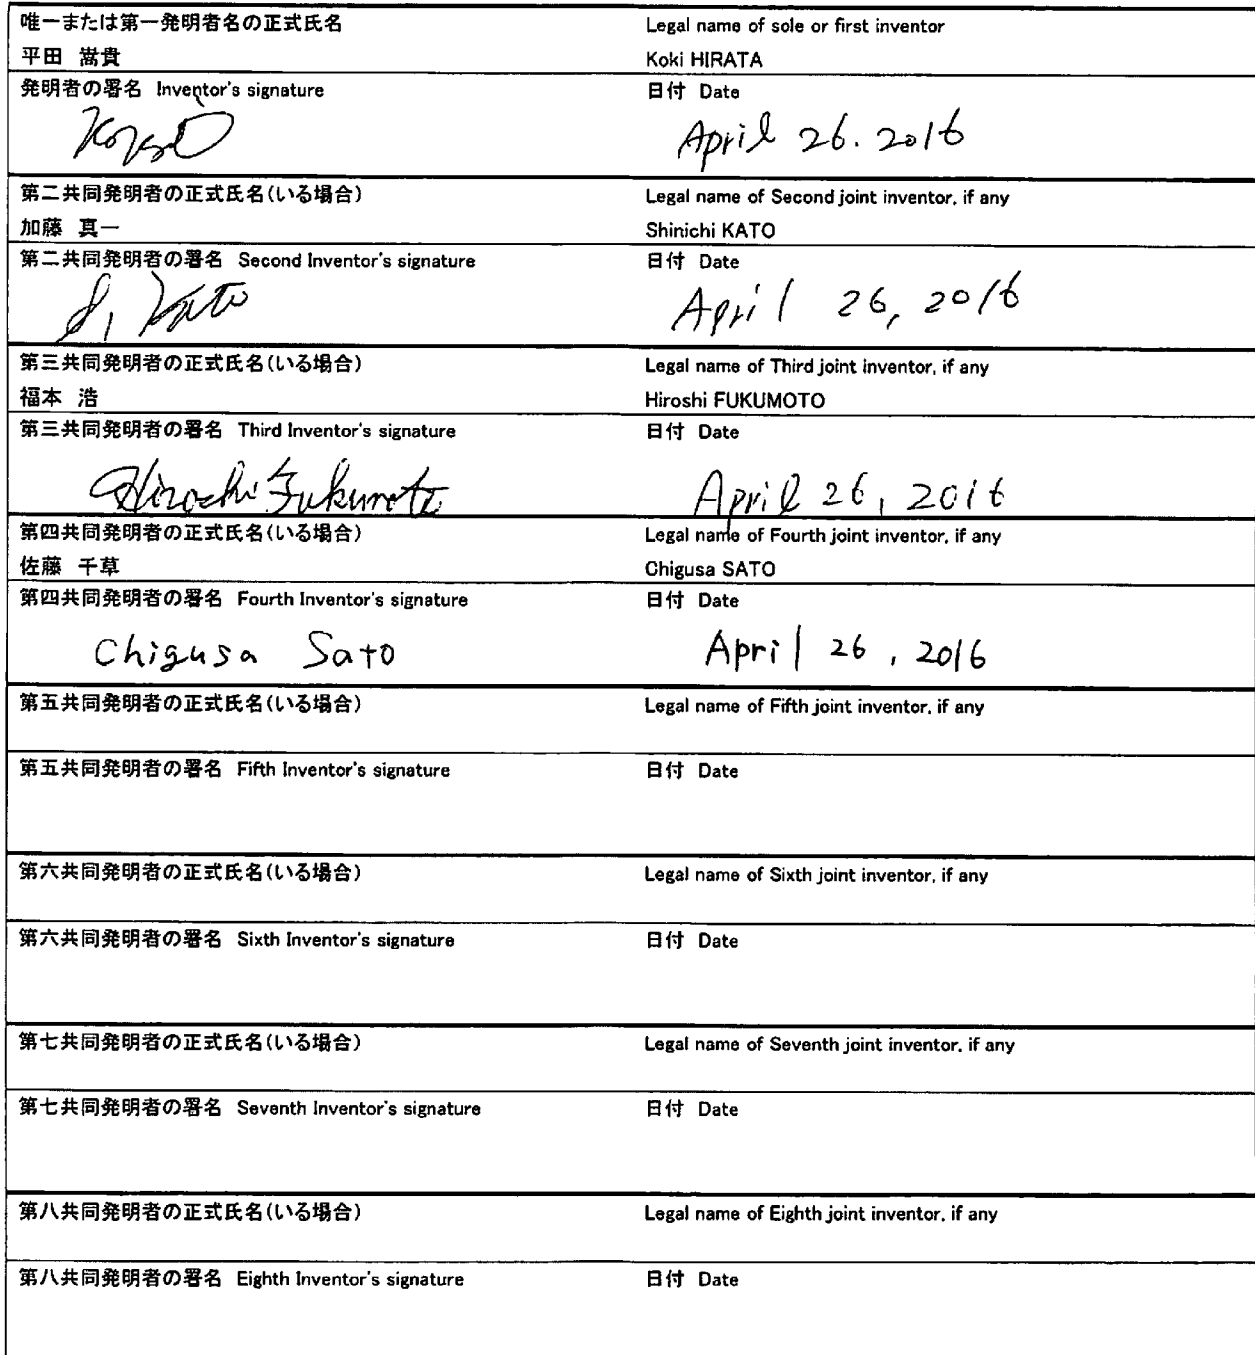 唯一または第一発明者名の正式氏名 Legal name of sole or first inventor
平田 嵩貴 Koki HIRATA
発明者の署名 Inventor's signature 日付 Date
April 26. 2016
第二共同発明者の正式氏名(いる場合) Legal name of Second joint inventor, if any
加藤 真一 Shinichi KATO
第二共同発明者の署名 Second Inventor's signature 日付 Date
S, Kato April 26, 2016
第三共同発明者の正式氏名(いる場合) Legal name of Third joint inventor, if any
福本 浩 Hiroshi FUKUMOTO
第三共同発明者の署名 Third Inventor's signature 日付 Date
Hiroshi Fukumoto April 26, 2016
第四共同発明者の正式氏名(いる場合) Legal name of Fourth joint inventor, if any
佐藤 千草 Chigusa SATO
第四共同発明者の署名 Fourth Inventor's signature 日付 Date
Chigusa Sato April 26, 2016
第五共同発明者の正式氏名(いる場合) Legal name of Fifth joint inventor, if any
第五共同発明者の署名 Fifth Inventor's signature 日付 Date
第六共同発明者の正式氏名(いる場合) Legal name of Sixth joint inventor, if any
第六共同発明者の署名 Sixth Inventor's signature 日付 Date
第七共同発明者の正式氏名(いる場合) Legal name of Seventh joint inventor, if any
第七共同発明者の署名 Seventh Inventor's signature 日付 Date
第八共同発明者の正式氏名(いる場合) Legal name of Eighth joint inventor, if any
第八共同発明者の署名 Eighth Inventor's signature 日付 Date